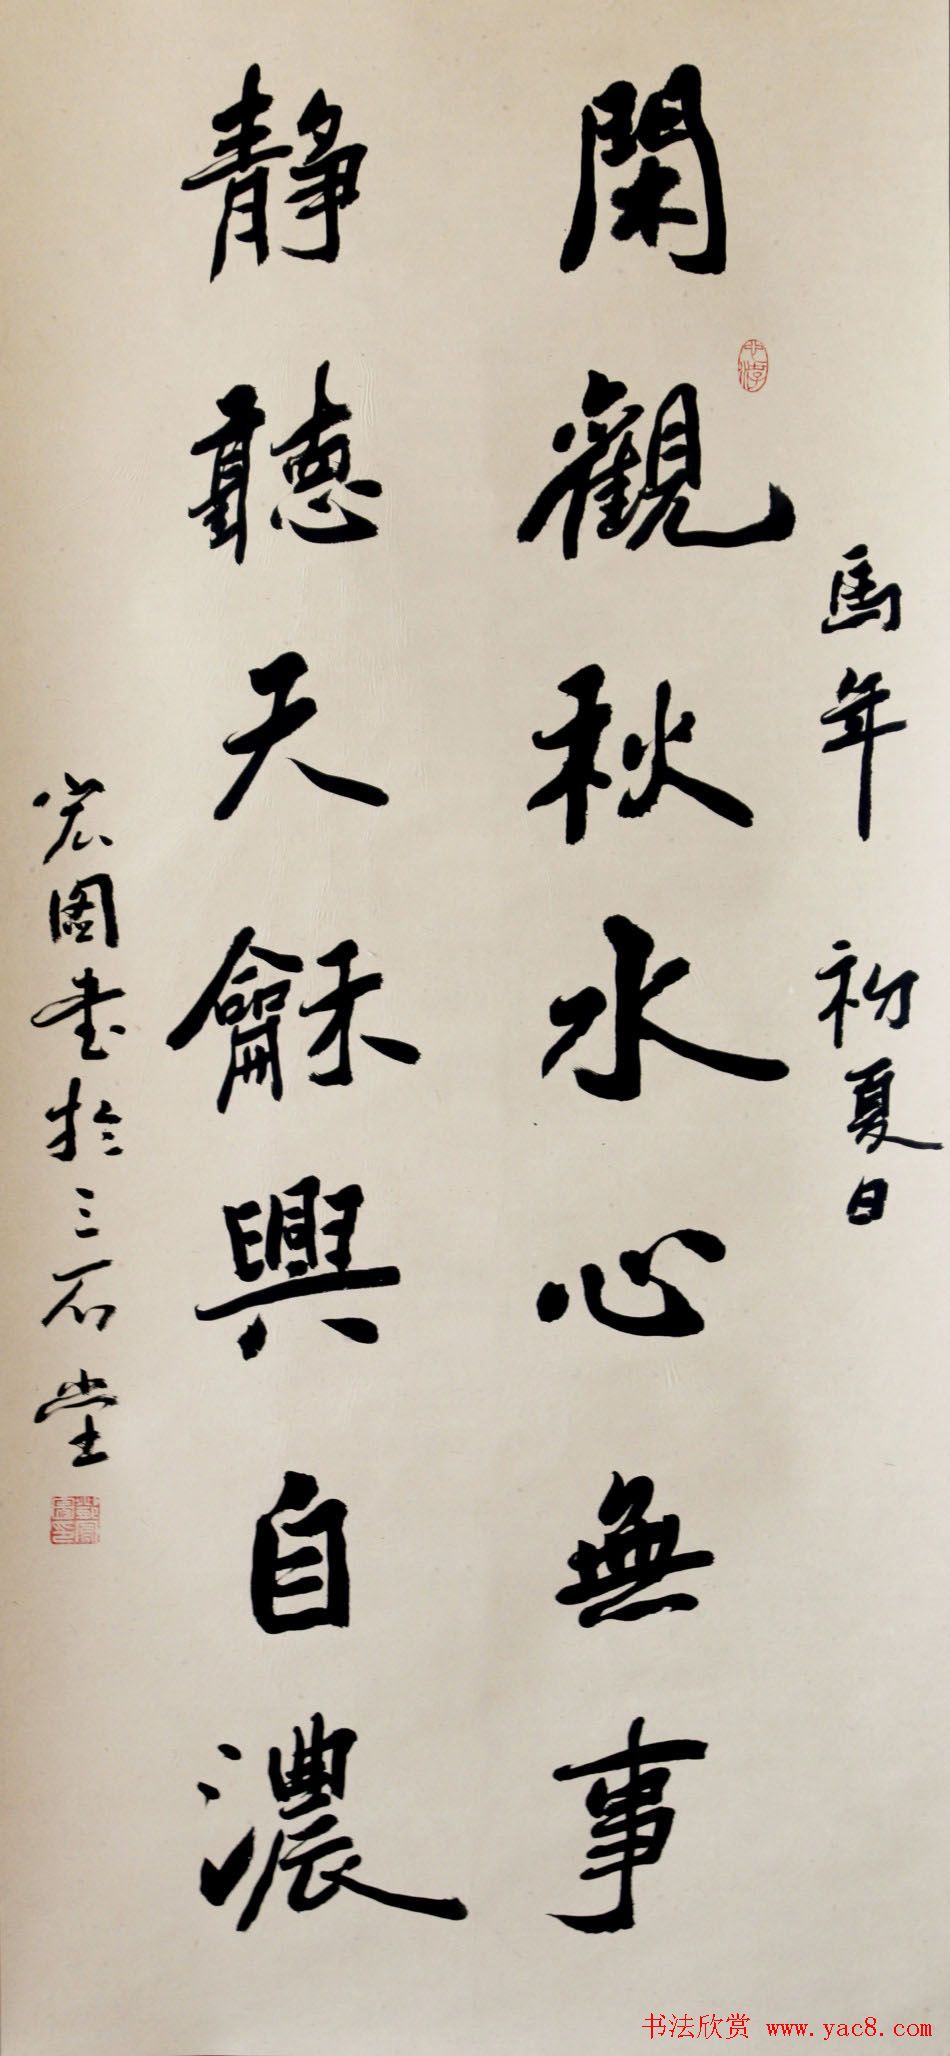 馬年初夏日
閑觀秋水心無事
靜聽天龢興自濃
宏图书於三石堂
书法欣赏 www.yac8.com